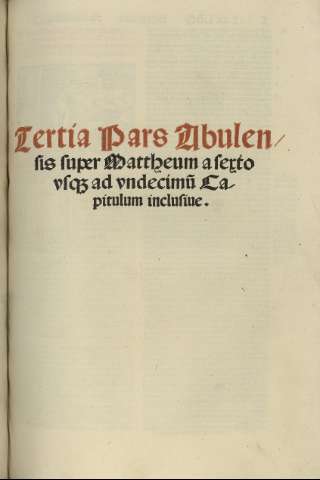 Tertia Pars Abulen/
sis super Mattheum a sexto
vsqꝫ ad vndecimū Ca-
pitulum inclusiue.